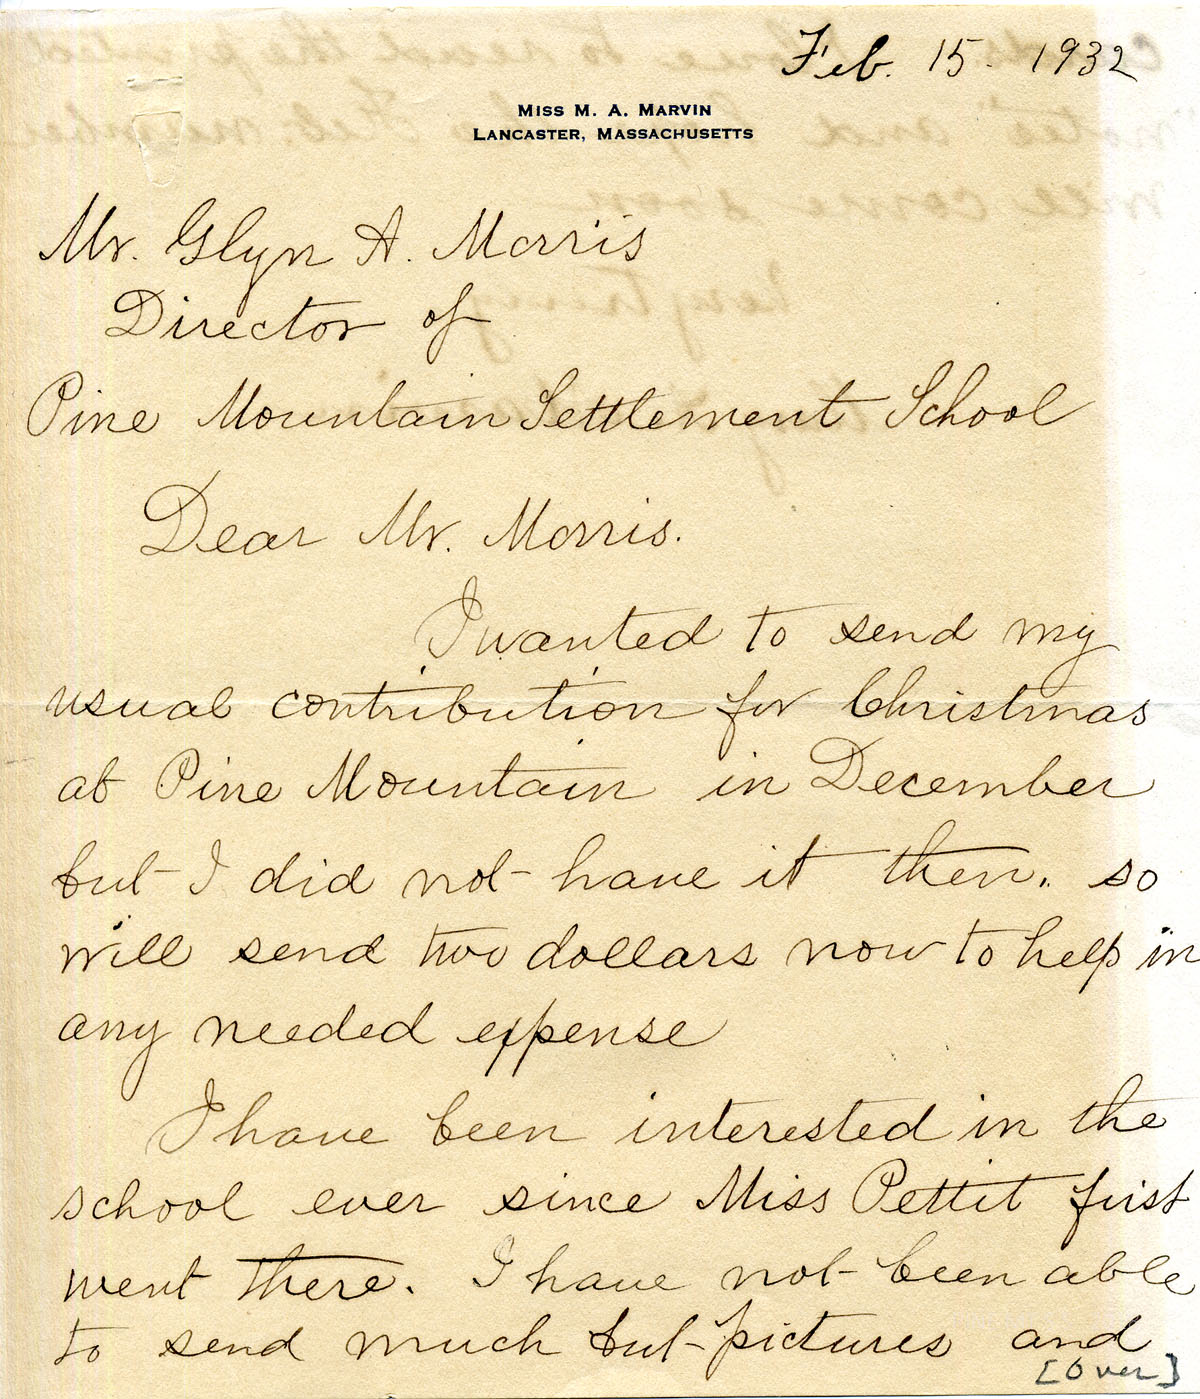 Feb. 15. 1932
MISS M. A. MARVIN
LANCASTER, MASSACHUSETTS
Mr. Glyn A. Morris
Director of
Pine Mountain Settlement School
Dear Mr. Morris.
I wanted to send my
usual contribution for Christmas
at Pine Mountain in December
but I did not have it then. so
will send two dollars now to help in
any needed expense
I have been interested in the
school ever since Miss Pettit first
went there. I have not been able
to send much but pictures and
[Over]